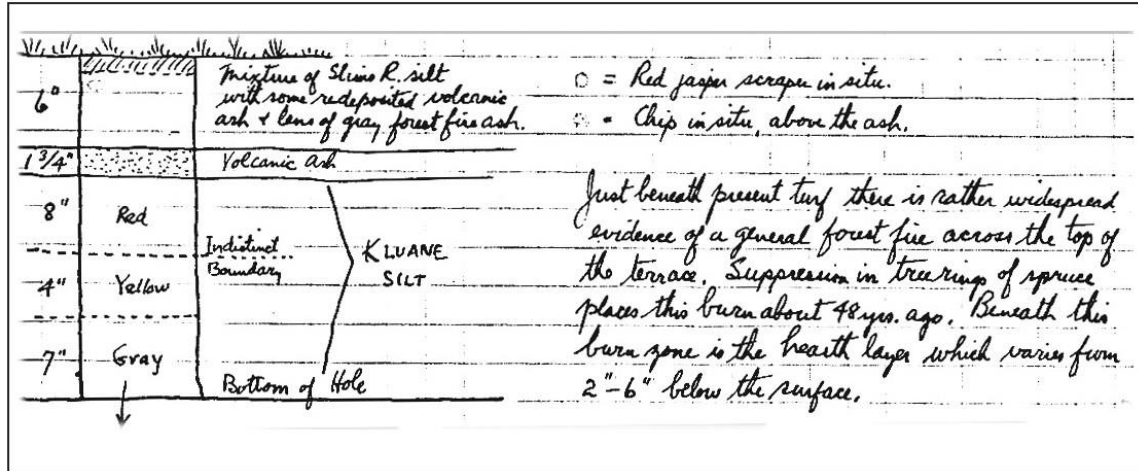 6"
Mixture of Slims R. silt
with some redeposited volcanic
ash & lens of gray forest fire ash.
1 3/4"
Volcanic ash
8"
Red
Indistinct
Boundary
4"
Yellow
KLUANE
SILT
7"
Gray
Bottom of Hole
= Red jasper scraper in situ.
= Chip in situ, above the ash.
Just beneath present turf there is rather widespread
evidence of a general forest fire across the top of
the terrace. Suppression in tree rings of spruce
places this burn about 48 yrs. ago. Beneath this
burn zone is the hearth layer which varies from
2"-6" below the surface.